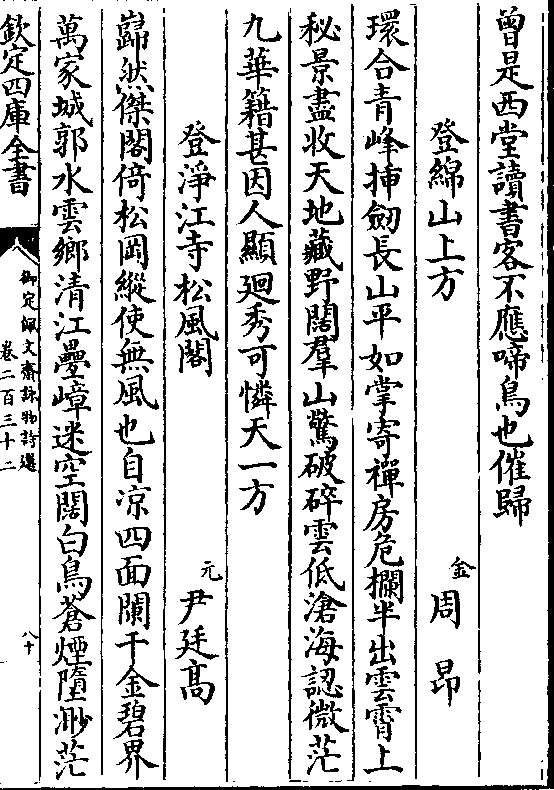 曾是西堂讀書客不應啼鳥也催歸
登綿山上方
金 周 昂
環合青峰揷劒長山平如掌寄禪房危欄半出雲霄上
秘景盡收天地藏野闊羣山驚破碎雲低滄海認微茫
九華籍甚因人顯迴秀可憐天一方
登淨江寺松風閣
元 尹廷高
巋然傑閣倚松岡縱使無風也自凉四面闌干金碧界
萬家城郭水雲鄉清江疊嶂迷空闊白鳥蒼煙墮渺茫
欽定四庫全書
御定佩文齋詠物詩選
卷二百三十二
八十